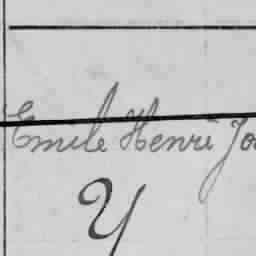 Emile Henri Jo
Y